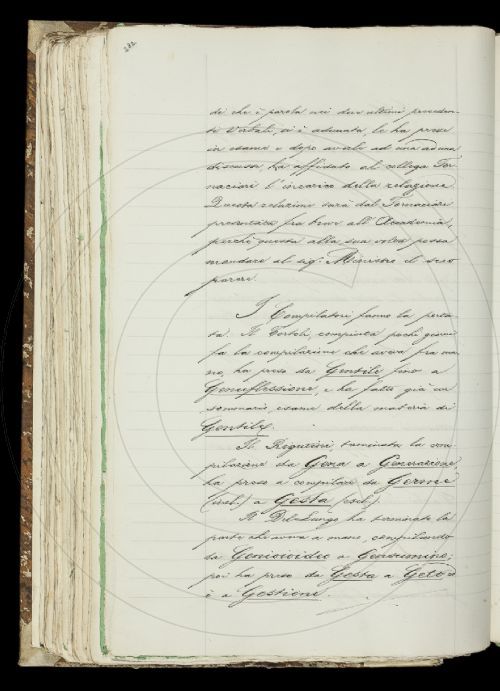 282
di che è parola nei due ultimi preceden-
ti Verbali, si è adunata, le ha prese
in esame e dopo averle ad una ad una
discusse, ha affidato al collega For-
naciari l'incarico della relazione.
Questa relazione sarà dal Fornaciari
presentata fra breve all'Accademia,
perchè questa alla sua volta possa
mandare al sig. Ministro il suo
parere.
I Compilatori fanno la
ta. Il Tortoli, compiuta pochi giorni
fa la compilazione che aveva fra ma
no, ha preso da Gentile fino a
Genuflessione, e ha fatto già un
sommario esame della materia di
Gentile.
Il Rigutini, terminata la com
pilazione da a Generazione
ha preso a compilare da Germe
(incl.) a Gesta (escl.)
Il Del Lungo ha terminato la
parte che aveva a mano, compilando
da a
poi ha preso da Gesta a
e a Gestione.